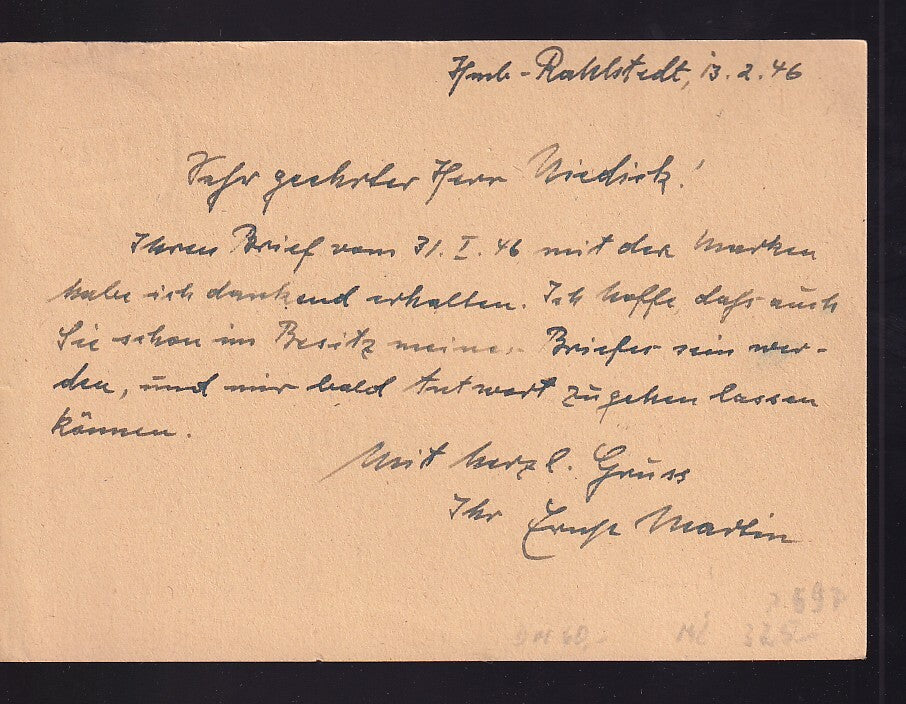 Hmb-Rahlstedt, 13.2.46
Sehr geehrter Herr Niedick!
Ihren Brief vom 31. I. 46 mit den Marken
habe ich dankend erhalten. Ich hoffe, dass auch
Sie schon im Besitz meines Briefes sein wer-
den, und mir bald Antwort zugehen lassen
können.
Mit herzl. Gruss
Ihr Ernst Martin
DM 60,-